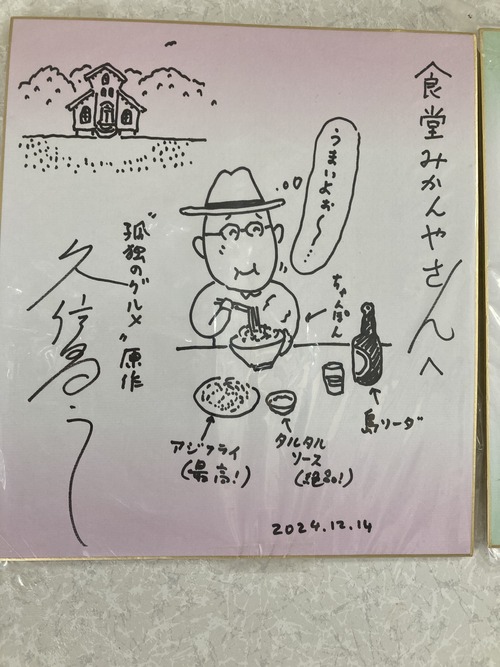 食堂みかんやさんへ
うまいよぉ〜…
ちゃんぽん
島ソーダ
"孤独のグルメ"原作
久住昌之
アジフライ
(最高!)
タルタル
ソース
(絶品!)
2024.12.14